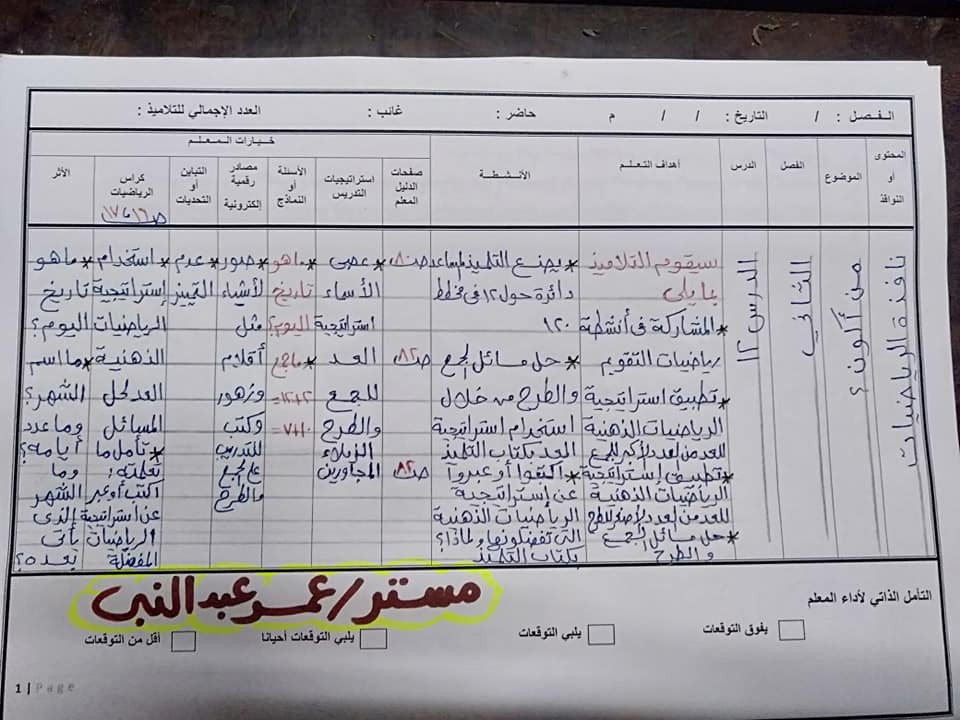 الفصل : / التاريخ : / / م حاضر : غائب : العدد الإجمالي للتلاميذ :
خيارات المعلم
المحتوى أو النوافذ
الموضوع
الفصل
الدرس
أهداف التعلم
الأنشطة
صفحات الدليل المعلم
استراتيجيات التدريس
الأسئلة أو النماذج
مصادر رقمية إلكترونية
التباين أو التحديات
كراس الرياضيات
ص ١٦، ١٧
الأثر
نافذة الرياضيات
من أكون؟
الثاني
الدرس ١٢
سيقوم التلاميذ
بما يلى
* المشاركة فى أنشطة
رياضيات التقويم
* تطبيق استراتيجية
الرياضيات الذهنية
للعد من لعدد لأكبر للجمع
* تطبيق إستراتيجية
الرياضيات الذهنية
للعد من لعدد لأصغر للطرح
* حل مسائل الجمع
والطرح
* يصنع التلميذ لمساعد
دائرة حول ١٢ فى مخطط
١٢٠
* حل مسائل الجمع
والطرح من خلال
استخدام استراتيجية
العد بكتاب التلميذ
* اكتبوا أو عبروا
عن إستراتيجية
الرياضيات الذهنية
التى تفضلونها ولماذا؟
بكتاب التلميذ
ص ٨٠
ص ٨٢
ص ٨٢
* عصى
الأسماء
استراتيجية
العد
للجمع
والطرح
الزملاء
المجاورين
* ماهو
تاريخ
اليوم؟
* ماناتج
١٢+٢=
٧+١٠=
* صور
لأشياء
مثل
أقلام
وزهور
وكتب
للتدريب
على الجمع
والطرح
* عدم
التمييز
* استخدام
إستراتيجية
الرياضيات
الذهنية
العد لحل
المسائل
* تأمل ما
تعلمته؛
اكتب أو عبر
عن استراتيجية
الرياضيات
المفضلة
* ماهو
تاريخ
اليوم؟
* ما اسم
الشهر؟
وما عدد
أيامه؟
وما
الشهر
الذى
يأتى
بعده؟
مستر/ عمر عبد النبى
التأمل الذاتي لأداء المعلم
يفوق التوقعات يلبي التوقعات يلبي التوقعات أحيانا أقل من التوقعات
1 | Page